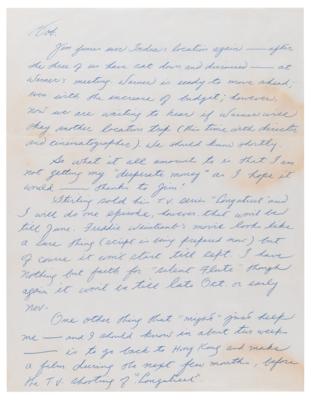 Bob,
Jim James over India's location again — after
the three of us have sat down and discussed — at
Warner's meeting. Warner is ready to move ahead,
even with the increase of budget; however,
now we are waiting to hear if Warner will
okay another location trip (this time with director
and cinematographer). We should know shortly.
So what it all amount to is that I am
not getting my "desperate money" as I hope it
would — thanks to Jim!
Stirling sold his T.V. series "Longstreet" and
I will do one episode, however that won't be
till June. Freddie Weintraub's movie looks like
a sure thing (script is being prepared now) but
of course it won't start till sept. I have
nothing but faith for "Silent Flute" though
again it won't be till late Oct. or early
Nov.
One other thing that "might" just keep
me — and I should know in about two weeks
— is to go back to Hong Kong and make
a film during the next few months, before
the T.V. shooting of "Longstreet".